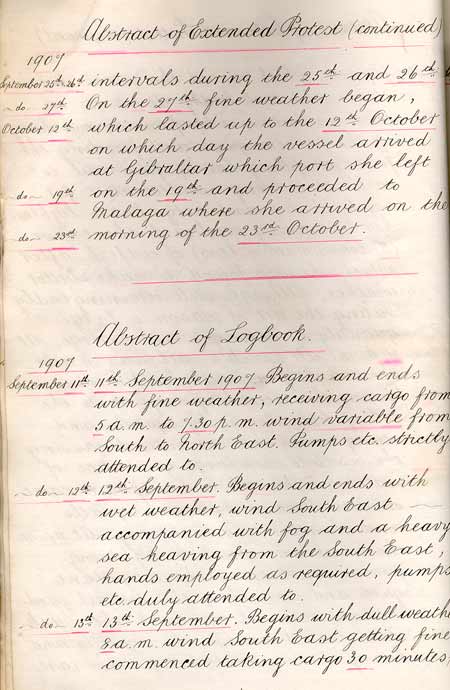 Abstract of Extended Protest (continued)
1907
September 25th 26th intervals during the 25th and 26th
-do- 27th On the 27th fine weather began,
October 12th which lasted up to the 12th October
on which day the vessel arrived
at Gibraltar which port she left
-do- 19th on the 19th and proceeded to
Malaga where she arrived on the
-do- 23rd morning of the 23rd October.
Abstract of Logbook.
1907
September 11th 11th September 1907 Begins and ends
with fine weather, receiving cargo from
5 a.m. to 7.30 p.m. wind variable from
South to North East. Pumps etc. strictly
attended to.
-do- 12th 12th September. Begins and ends with
wet weather, wind South East
accompanied with fog and a heavy
sea heaving from the South East,
hands employed as required, pumps
etc. duly attended to.
-do- 13th 13th September. Begins with dull weathe
a.m. wind South East getting fine
commenced taking cargo 30 minutes,